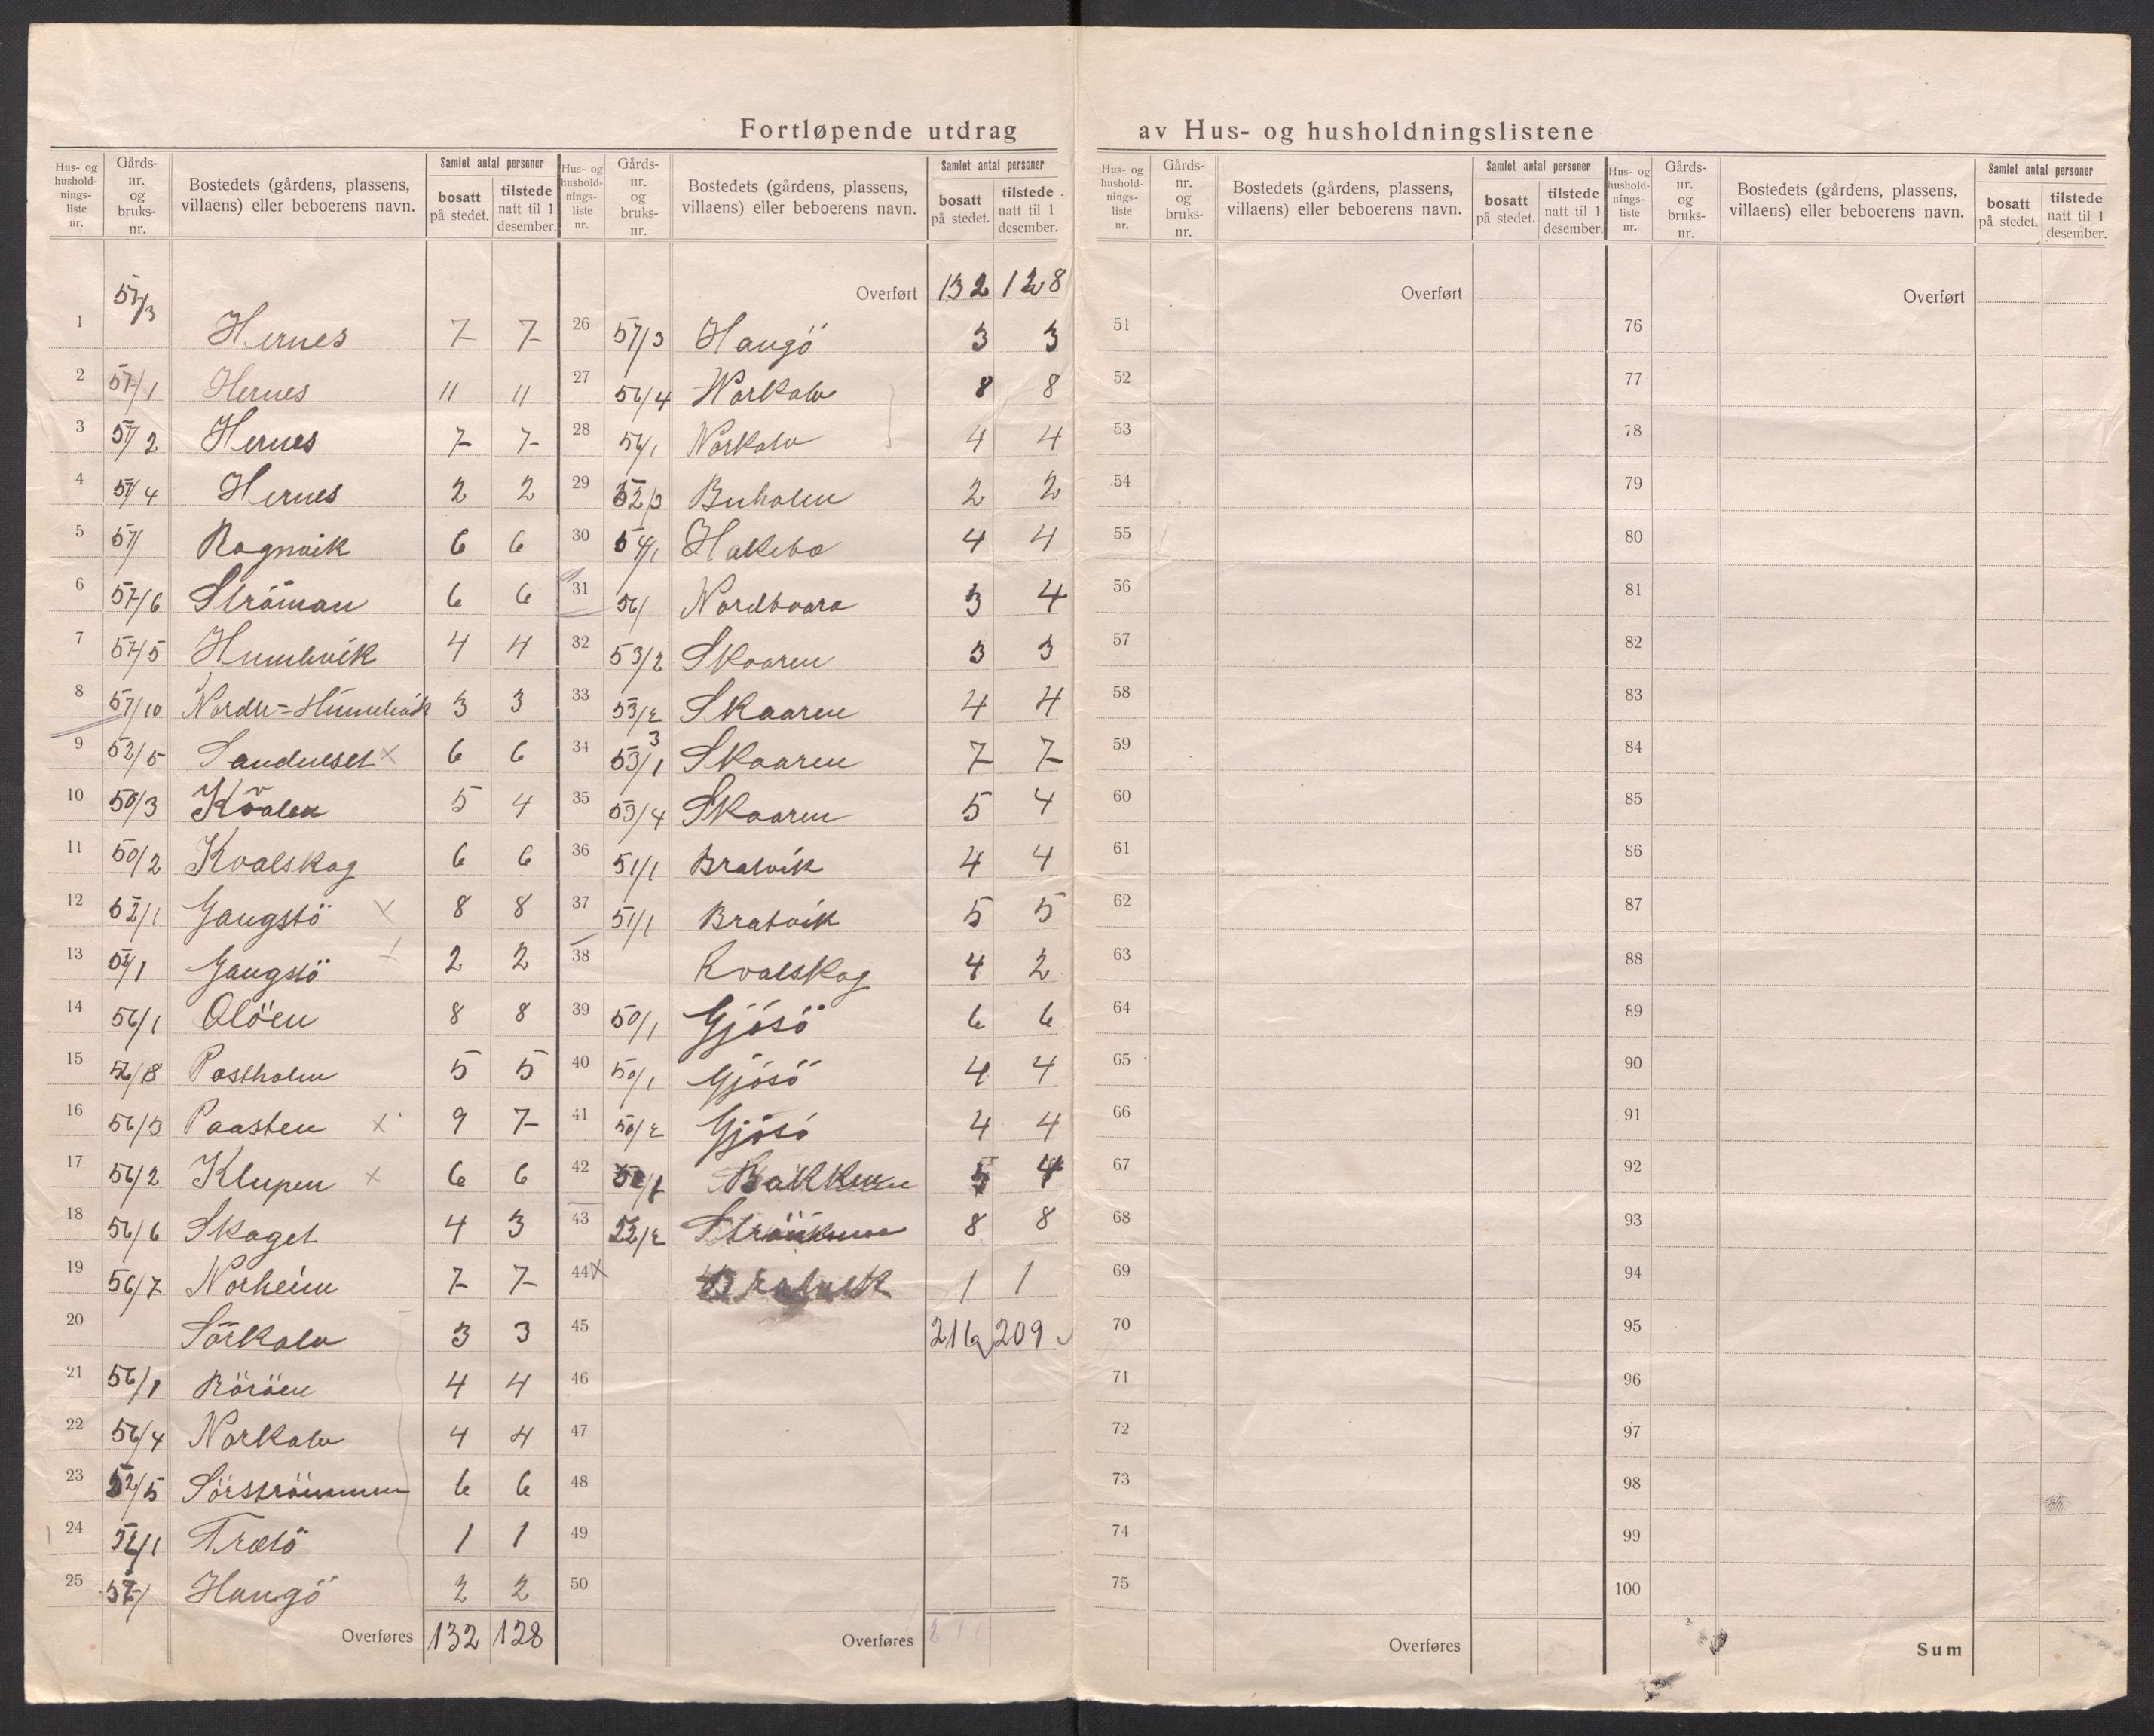 Fortløpende utdrag av Hus- og husholdningslistene
Hus- og husholdnings-liste nr. Gårds-nr. og bruks-nr. Bostedets (gårdens, plassens, villaens) eller beboerens navn. Samlet antal personer bosatt på stedet. tilstede natt til 1 desember.
Hus- og husholdnings-liste nr. Gårds-nr. og bruks-nr. Bostedets (gårdens, plassens, villaens) eller beboerens navn. Samlet antal personer bosatt på stedet. tilstede natt til 1 desember.
Hus- og husholdnings-liste nr. Gårds-nr. og bruks-nr. Bostedets (gårdens, plassens, villaens) eller beboerens navn. Samlet antal personer bosatt på stedet. tilstede natt til 1 desember.
Hus- og husholdnings-liste nr. Gårds-nr. og bruks-nr. Bostedets (gårdens, plassens, villaens) eller beboerens navn. Samlet antal personer bosatt på stedet. tilstede natt til 1 desember.
1 57/3 Hernes 7 7
2 57/1 Hernes 11 11
3 57/2 Hernes 7 7
4 57/4 Hernes 2 2
5 57/ Ragnvik 6 6
6 57/6 Ströman 6 6
7 57/5 Humlevik 4 4
8 57/10 Nordre-Humlevik 3 3
9 52/5 Sandneset x 6 6
10 50/3 Kvalen 5 4
11 50/2 Kvalskag 6 6
12 52/1 Gangstö x 8 8
13 52/1 Gangstö x 2 2
14 56/1 Olöen 8 8
15 56/8 Postholm 5 5
16 56/3 Paasten x 9 7
17 56/2 Klupen x 6 6
18 56/6 Skaget 4 3
19 56/7 Norheim 7 7
20 Sörkalv 3 3
21 56/1 Röröen 4 4
22 56/4 Norkalv 4 4
23 52/5 Sörströmmen 6 6
24 52/1 Trætö 1 1
25 57/1 Haugö 2 2
Overføres 132 128
Overført 132 128
26 57/3 Haugö 3 3
27 56/4 Norkalv 8 8
28 56/1 Norkalv 4 4
29 52/3 Buholm 2 2
30 54/1 Hakebo 4 4
31 56/ Nordvaara 3 4
32 53/2 Skaaren 3 3
33 53/2 Skaaren 4 4
34 53/1 3 Skaaren 7 7
35 53/4 Skaaren 5 4
36 51/1 Bratvik 4 4
37 51/1 Bratvik 5 5
38 Kvalskag 4 2
39 50/1 Gjösö 6 6
40 50/1 Gjösö 4 4
41 50/2 Gjösö 4 4
42 Bakken 5 4
43 52/2 8 8
44 x Bratvik 1 1
45 216 209
46
47
48
49
50
Overføres
Overført
51
52
53
54
55
56
57
58
59
60
61
62
63
64
65
66
67
68
69
70
71
72
73
74
75
Overføres
Overført
76
77
78
79
80
81
82
83
84
85
86
87
88
89
90
91
92
93
94
95
96
97
98
99
100
Sum